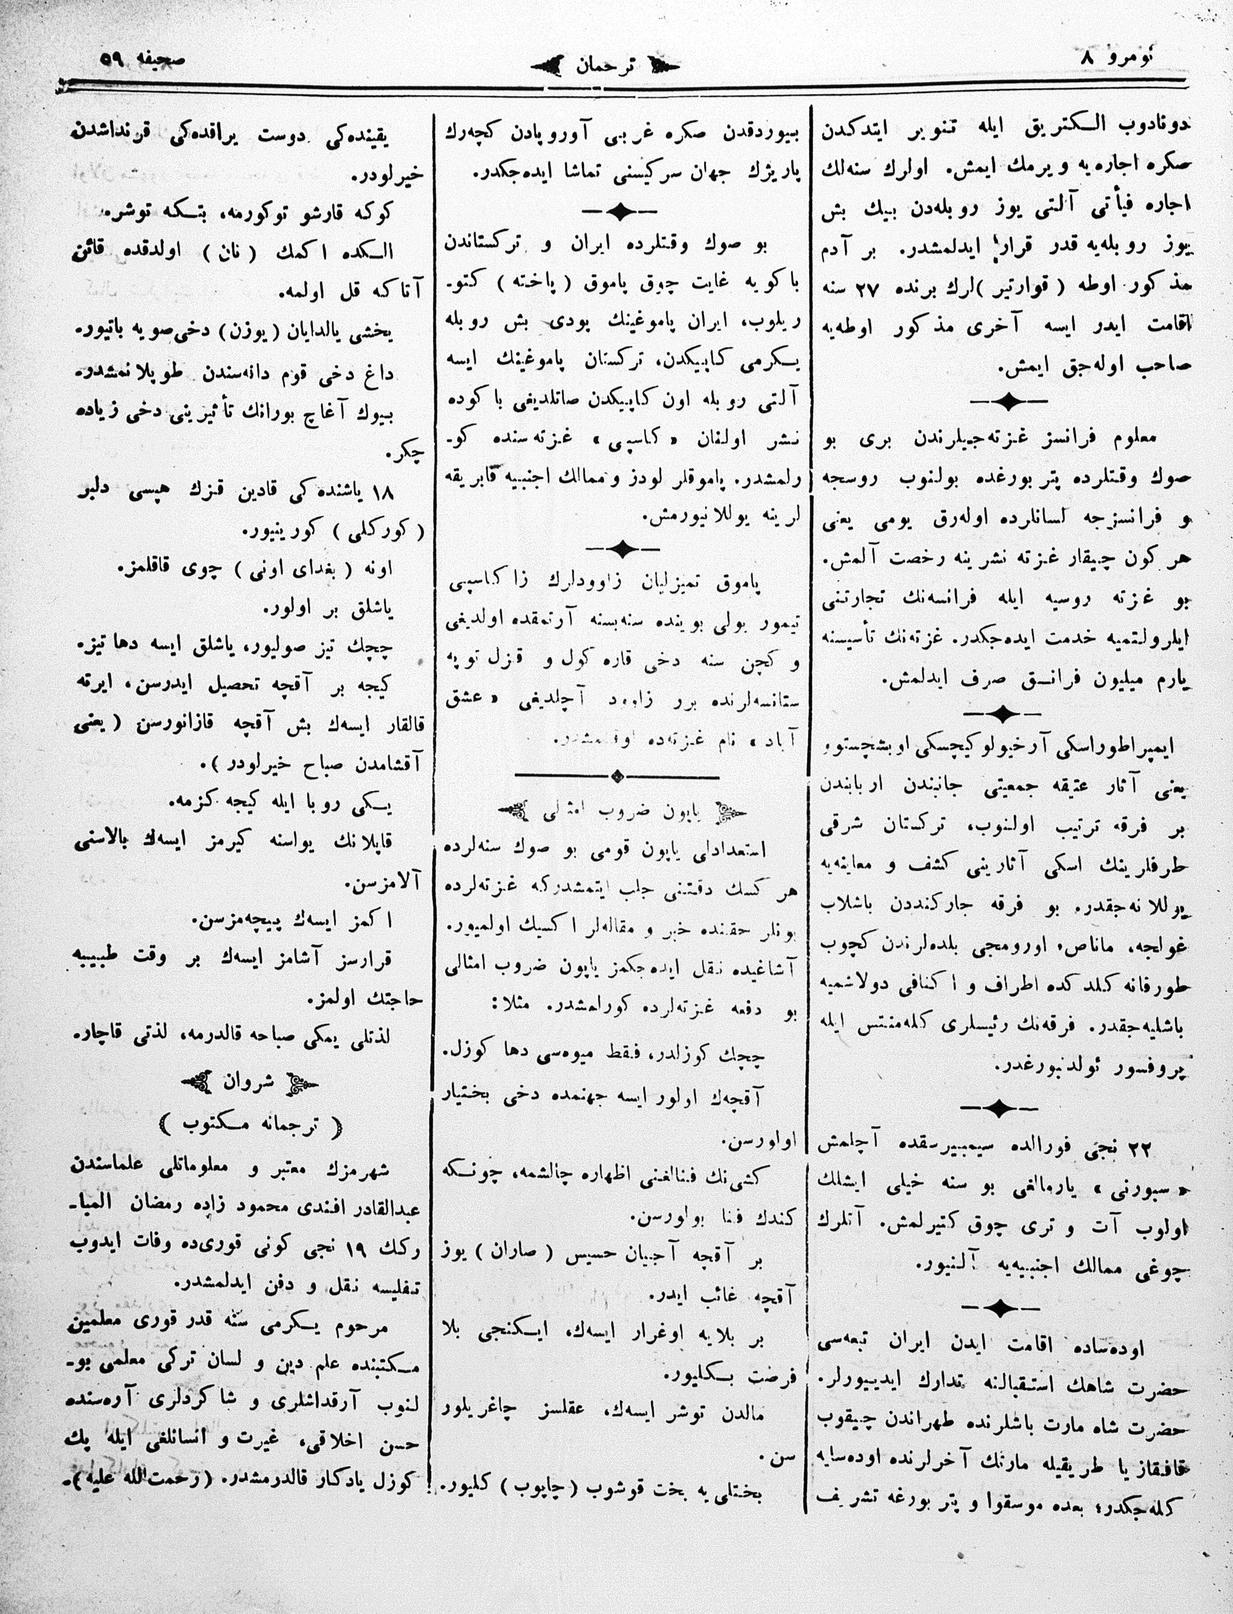 نومرو ٨
ترجمان
صحیفه ٥٩
دونادوب الكتریق ایله تنویر ایتدكدن
صكره اجاره‌یه ویرمك ایمش. اولرك سنه‌لك
اجاره فیأتی آلتی یوز روبله‌دن بیك بش
یوز روبله‌یه قدر قرار ایدلمشدر. بر آدم
مذكور اوطه (قوارتیر) لرك برنده ٢٧ سنه
اقامت ایدر ایسه آخری مذكور اوطه‌یه
صاحب اوله‌جق ایمش.
معلوم فرانسز غزته‌جیلرندن بری بو
صوك وقتلرده پتربورغده بولنوب روسجه
و فرانسزجه لسانلرده اوله‌رق یومی یعنی
هر كون چیقار غزته نشرینه رخصت آلمش.
بو غزته روسیه ایله فرانسه‌نك تجارتنی
ایلرولتمیه خدمت ایده‌جكدر. غزته‌نك تأسیسنه
یارم میلیون فرانق صرف ایدلمش.
ایمپراطوراسكی آرخیولوكیچسكی اوبشچستوو
یعنی آثار عتیقه جمعیتی جانبندن اربابندن
بر فرقه ترتیب اولنوب، تركستان شرقی
طرفلرینك اسكی آثارینی كشف و معاینه‌یه
یوللانه‌جقدر. بو فرقه جاركنددن باشلاب
غولجه، ماناص، اورومجی بلده‌لرندن كچوب
طورفانه كلدكده اطراف و اكنافی دولاشمیه
باشلیه‌جقدر. فرقه‌نك رئیسلری كله‌منتس ایله
پروفسور ئولدنبورغدر.
٢٢ نجی فورالده سیمبیرسقده آچلمش
«سبورنی» یارمالغی بو سنه خیلی ایشلك
اولوب آت و تری چوق كتیرلمش. آنلرك
چوغی ممالك اجنبیه‌یه آلنیور.
اوده‌ساده اقامت ایدن ایران تبعه‌سی
حضرت شاهك استقبالنه تدارك ایدییورلر.
حضرت شاه مارت باشلرنده طهراندن چیقوب
قافقازیا طریقیله مارتك آخرلرنده اوده‌سایه
كله‌جكدر؛ بعده موسقوا و پتربورغه تشریف
بیوردقدن صكره غربی آوروپادن كچه‌رك
پاریژك جهان سركیسنی تماشا ایده‌جكدر.
بو صوك وقتلرده ایران و تركستاندن
باكویه غایت چوق پاموق (پاخته) كتو-
ریلوب، ایران پاموغینك پودی بش روبله
یكرمی كاپیكدن، تركستان پاموغینك ایسه
آلتی روبله اون كاپیكدن صاتلدیغی باكوده
نشر اولنان «كاسپی» غزته‌سنده كو-
رلمشدر. پاموقلر لودز و ممالك اجنبیه فابریقه
لرینه یوللانیورمش.
پاموق تمیزلیان زاوودلرك زاكاسپی
تیمور یولی بوینده سنه‌بسنه آرتمقده اولدیغی
و كچن سنه دخی قاره كول و قزل توپه
ستانسه‌لرنده برر زاوود آچلدیغی «عشق
آباد» نام غزته‌ده اوقنمشدر.
یاپون ضروب امثالی
استعدادلی یاپون قومی بو صوك سنه‌لرده
هر كسك دقتنی جلب ایتمشدركه غزته‌لرده
بونلر حقنده خبر و مقاله‌لر اكسیك اولمیور.
آشاغیده نقل ایده‌جكمز یاپون ضروب امثالی
بو دفعه غزته‌لرده كورلمشدر. مثلا:
چچك كوزلدر، فقط میوه‌سی دها كوزل.
آقچه‌ك اولور ایسه جهنمده دخی بختیار
اولورسن.
كشی‌نك فنالغنی اظهاره چالشمه، چونكه
كندك فنا بولورسن.
بر آقچه آجیان حسیس (صاران) یوز
آقچه غائب ایدر.
بر بلایه اوغرار ایسه‌ك، ایكنجی بلا
فرصت بكلیور.
مالدن توشر ایسه‌ك، عقلسز چاغریلور
سن.
بختلی‌یه بخت قوشوب (چاپوب) كلیور.
یقینده‌كی دوست یراقده‌كی قرنداشدن
خیرلودر.
كوكه قارشو توكورمه، بتكه توشر.
الكده اكمك (نان) اولدقده قائن
آتاكه قل اولمه.
یخشی یالدایان (یوزن) دخی صویه باتیور.
داغ دخی قوم دانه‌سندن طوپلانمشدر.
بیوك آغاچ بورانك تأثیرینی دخی زیاده
چكر.
١٨ یاشنده‌كی قادین قزك هپسی دلبر
(كوركلی) كورینیور.
اونه (بغدای اونی) چوی قاقلمز.
یاشلق بر اولور.
چچك تیز صولیور، یاشلق ایسه دها تیز.
كیجه بر آقچه تحصیل ایدرسن، ایرته
قالقار ایسه‌ك بش آقچه قازانورسن (یعنی
آقشامدن صباح خیرلودر).
یكی روبا ایله كیجه كزمه.
قاپلانك یواسنه كیرمز ایسه‌ك بالاسنی
آلامزسن.
اكمز ایسه‌ك پیچه‌مزسن.
قرارسز آشامز ایسه‌ك بر وقت طبیبه
حاجتك اولمز.
لذتلی یمكی صباحه قالدرمه، لذتی قاچار.
شروان
(ترجمانه مكتوب)
شهرمزك معتبر و معلوماتلی علماسندن
عبدالقادر افندی محمود زاده رمضان المبا-
ركك ١٩ نجی كونی قوری‌ده وفات ایدوب
تفلیسه نقل و دفن ایدلمشدر.
مرحوم یكرمی سنه قدر قوری معلمین
مكتبنده علم دین و لسان تركی معلمی بو-
لنوب آرقداشلری و شاكردلری آره‌سنده
حسن اخلاقی، غیرت و انسانلغی ایله پك
كوزل یادكار قالدرمشدر. (رحمت‌الله علیه).